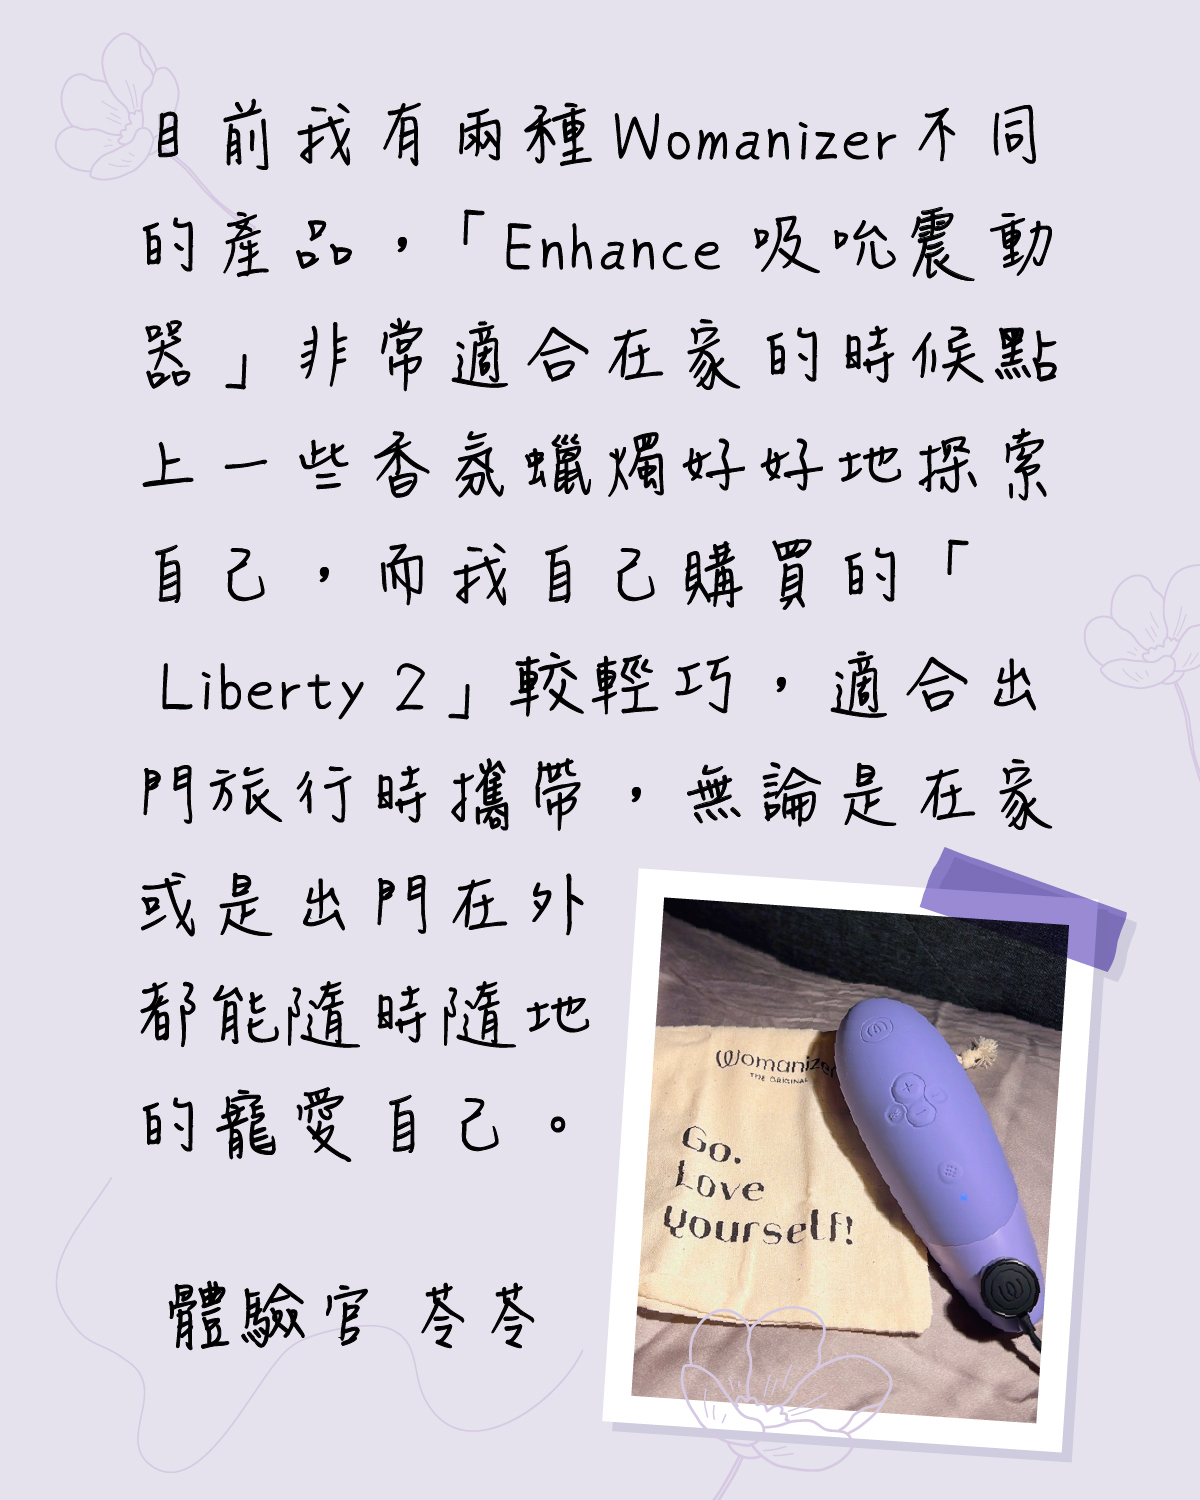 目前我有兩種Womanizer不同
的產品，「Enhance 吸吮震動
器」非常適合在家的時候點
上一些香氛蠟燭好好地探索
自己，而我自己購買的「
Liberty 2」較輕巧，適合出
門旅行時攜帶，無論是在家
或是出門在外
都能隨時隨地
的寵愛自己。
Womanizer
THE ORIGINAL
Go.
Love
Yourself!
體驗官 苓苓